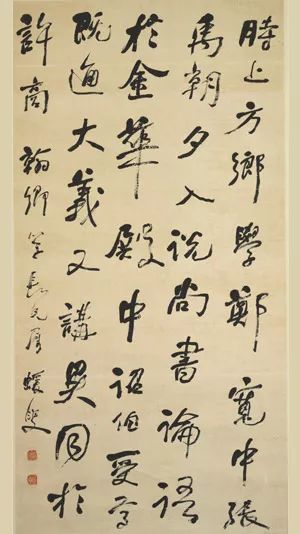 時上方鄉學鄭寬中張
禹朝夕入說尚書論語
於金華殿中詔伯受焉
既通大義又講異同於
許商翰卿長兄屬蝯叟